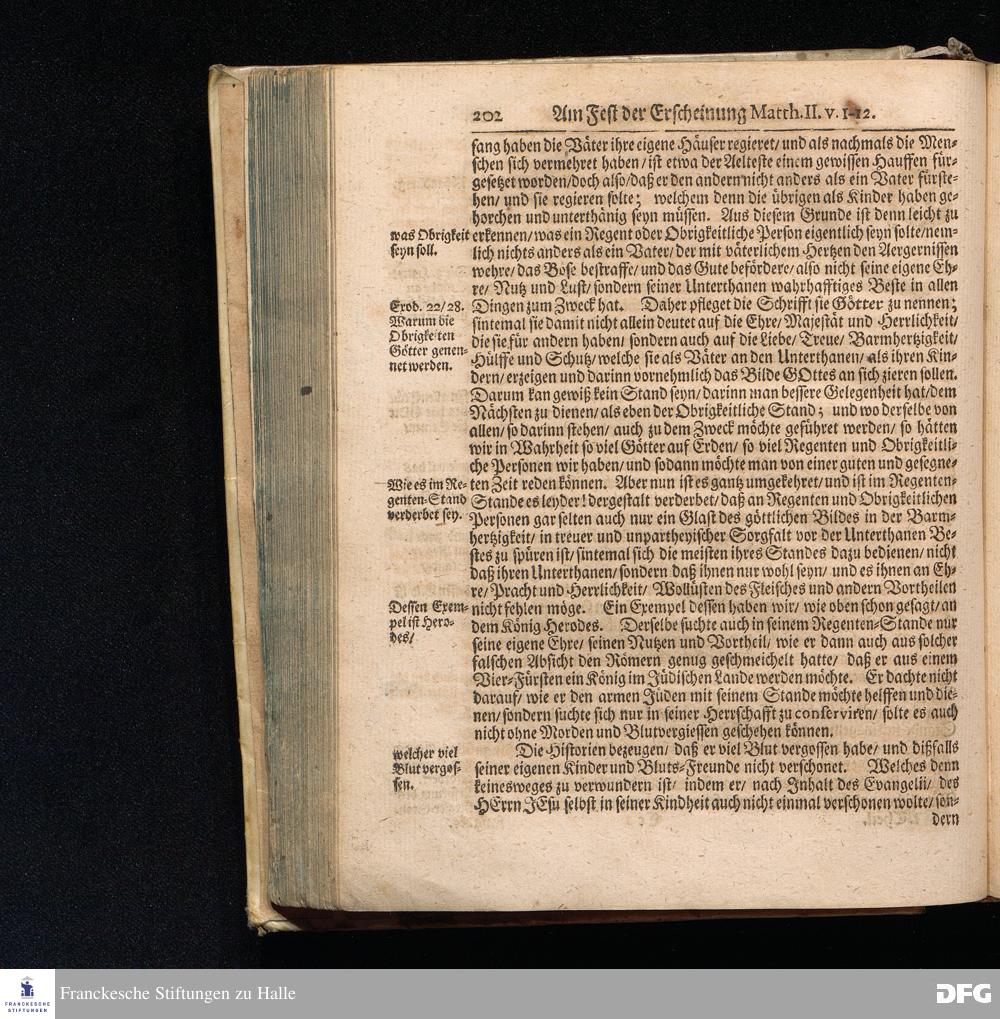 202 Am Fest der Erscheinung Matth. II. v. 1-12.
fang haben die Väter ihre eigene Häuser regieret/ und als nachmals die Men-
schen sich vermehret haben/ ist etwa der Aelteste einem gewissen Hauffen für-
gesetzet worden/ doch also/ daß er den andern nicht anders als ein Vater fürste-
hen/ und sie regieren solte; welchem denn die übrigen als Kinder haben ge-
horchen und unterthänig seyn müssen. Aus diesem Grunde ist denn leicht zu
was Obrigkeit
seyn soll.
erkennen/ was ein Regent oder Obrigkeitliche Person eigentlich seyn solte/ nem-
lich nichts anders als ein Vater/ der mit väterlichem Hertzen den Aergernissen
wehre/ das Böse bestraffe/ und das Gute befördere/ also nicht seine eigene Eh-
re/ Nutz und Lust/ sondern seiner Unterthanen wahrhafftiges Beste in allen
Exod. 22/28.
Warum die
Obrigkeiten
Götter genen-
net werden.
Dingen zum Zweck hat. Daher pfleget die Schrifft sie Götter zu nennen;
sintemal sie damit nicht allein deutet auf die Ehre/ Majestät und Herrlichkeit/
die sie für andern haben/ sondern auch auf die Liebe/ Treue/ Barmhertzigkeit/
Hülffe und Schutz/ welche sie als Väter an den Unterthanen/ als ihren Kin-
dern/ erzeigen und darinn vornehmlich das Bilde GOttes an sich zieren sollen.
Darum kan gewiß kein Stand seyn/ darinn man bessere Gelegenheit hat/ dem
Nächsten zu dienen/ als eben der Obrigkeitliche Stand; und wo derselbe von
allen/ so darinn stehen/ auch zu dem Zweck möchte geführet werden/ so hätten
wir in Wahrheit so viel Götter auf Erden/ so viel Regenten und Obrigkeitli-
che Personen wir haben/ und sodann möchte man von einer guten und gesegne-
Wie es im Re-
genten-Stand
verderbet sey.
ten Zeit reden können. Aber nun ist es gantz umgekehret/ und ist im Regenten-
Stande es leyder! dergestalt verderbet/ daß an Regenten und Obrigkeitlichen
Personen gar selten auch nur ein Glast des göttlichen Bildes in der Barm-
hertzigkeit/ in treuer und unpartheyischer Sorgfalt vor der Unterthanen Be-
stes zu spüren ist/ sintemal sich die meisten ihres Standes dazu bedienen/ nicht
daß ihren Unterthanen/ sondern daß ihnen nur wohl seyn/ und es ihnen an Eh-
re/ Pracht und Herrlichkeit/ Wollüsten des Fleisches und andern Vortheilen
Dessen Exem-
pel ist Hero-
des/
nicht fehlen möge. Ein Exempel dessen haben wir/ wie oben schon gesagt/ an
dem König Herodes. Derselbe suchte auch in seinem Regenten-Stande nur
seine eigene Ehre/ seinen Nutzen und Vortheil/ wie er dann auch aus solcher
falschen Absicht den Römern genug geschmeichelt hatte/ daß er aus einem
Vier-Fürsten ein König im Jüdischen Lande werden möchte. Er dachte nicht
darauf/ wie er den armen Jüden mit seinem Stande möchte helffen und die-
nen/ sondern suchte sich nur in seiner Herrschafft zu conserviren/ solte es auch
nicht ohne Morden und Blutvergiessen geschehen können.
welcher viel
Blut vergos-
sen.
Die Historien bezeugen/ daß er viel Blut vergossen habe/ und dißfalls
seiner eigenen Kinder und Bluts-Freunde nicht verschonet. Welches denn
keinesweges zu verwundern ist/ indem er/ nach Inhalt des Evangelii/ des
HErrn JEsu selbst in seiner Kindheit auch nicht einmal verschonen wolte/ son-
dern
FRANCKESCHE
STIFTUNGEN
Franckesche Stiftungen zu Halle
DFG